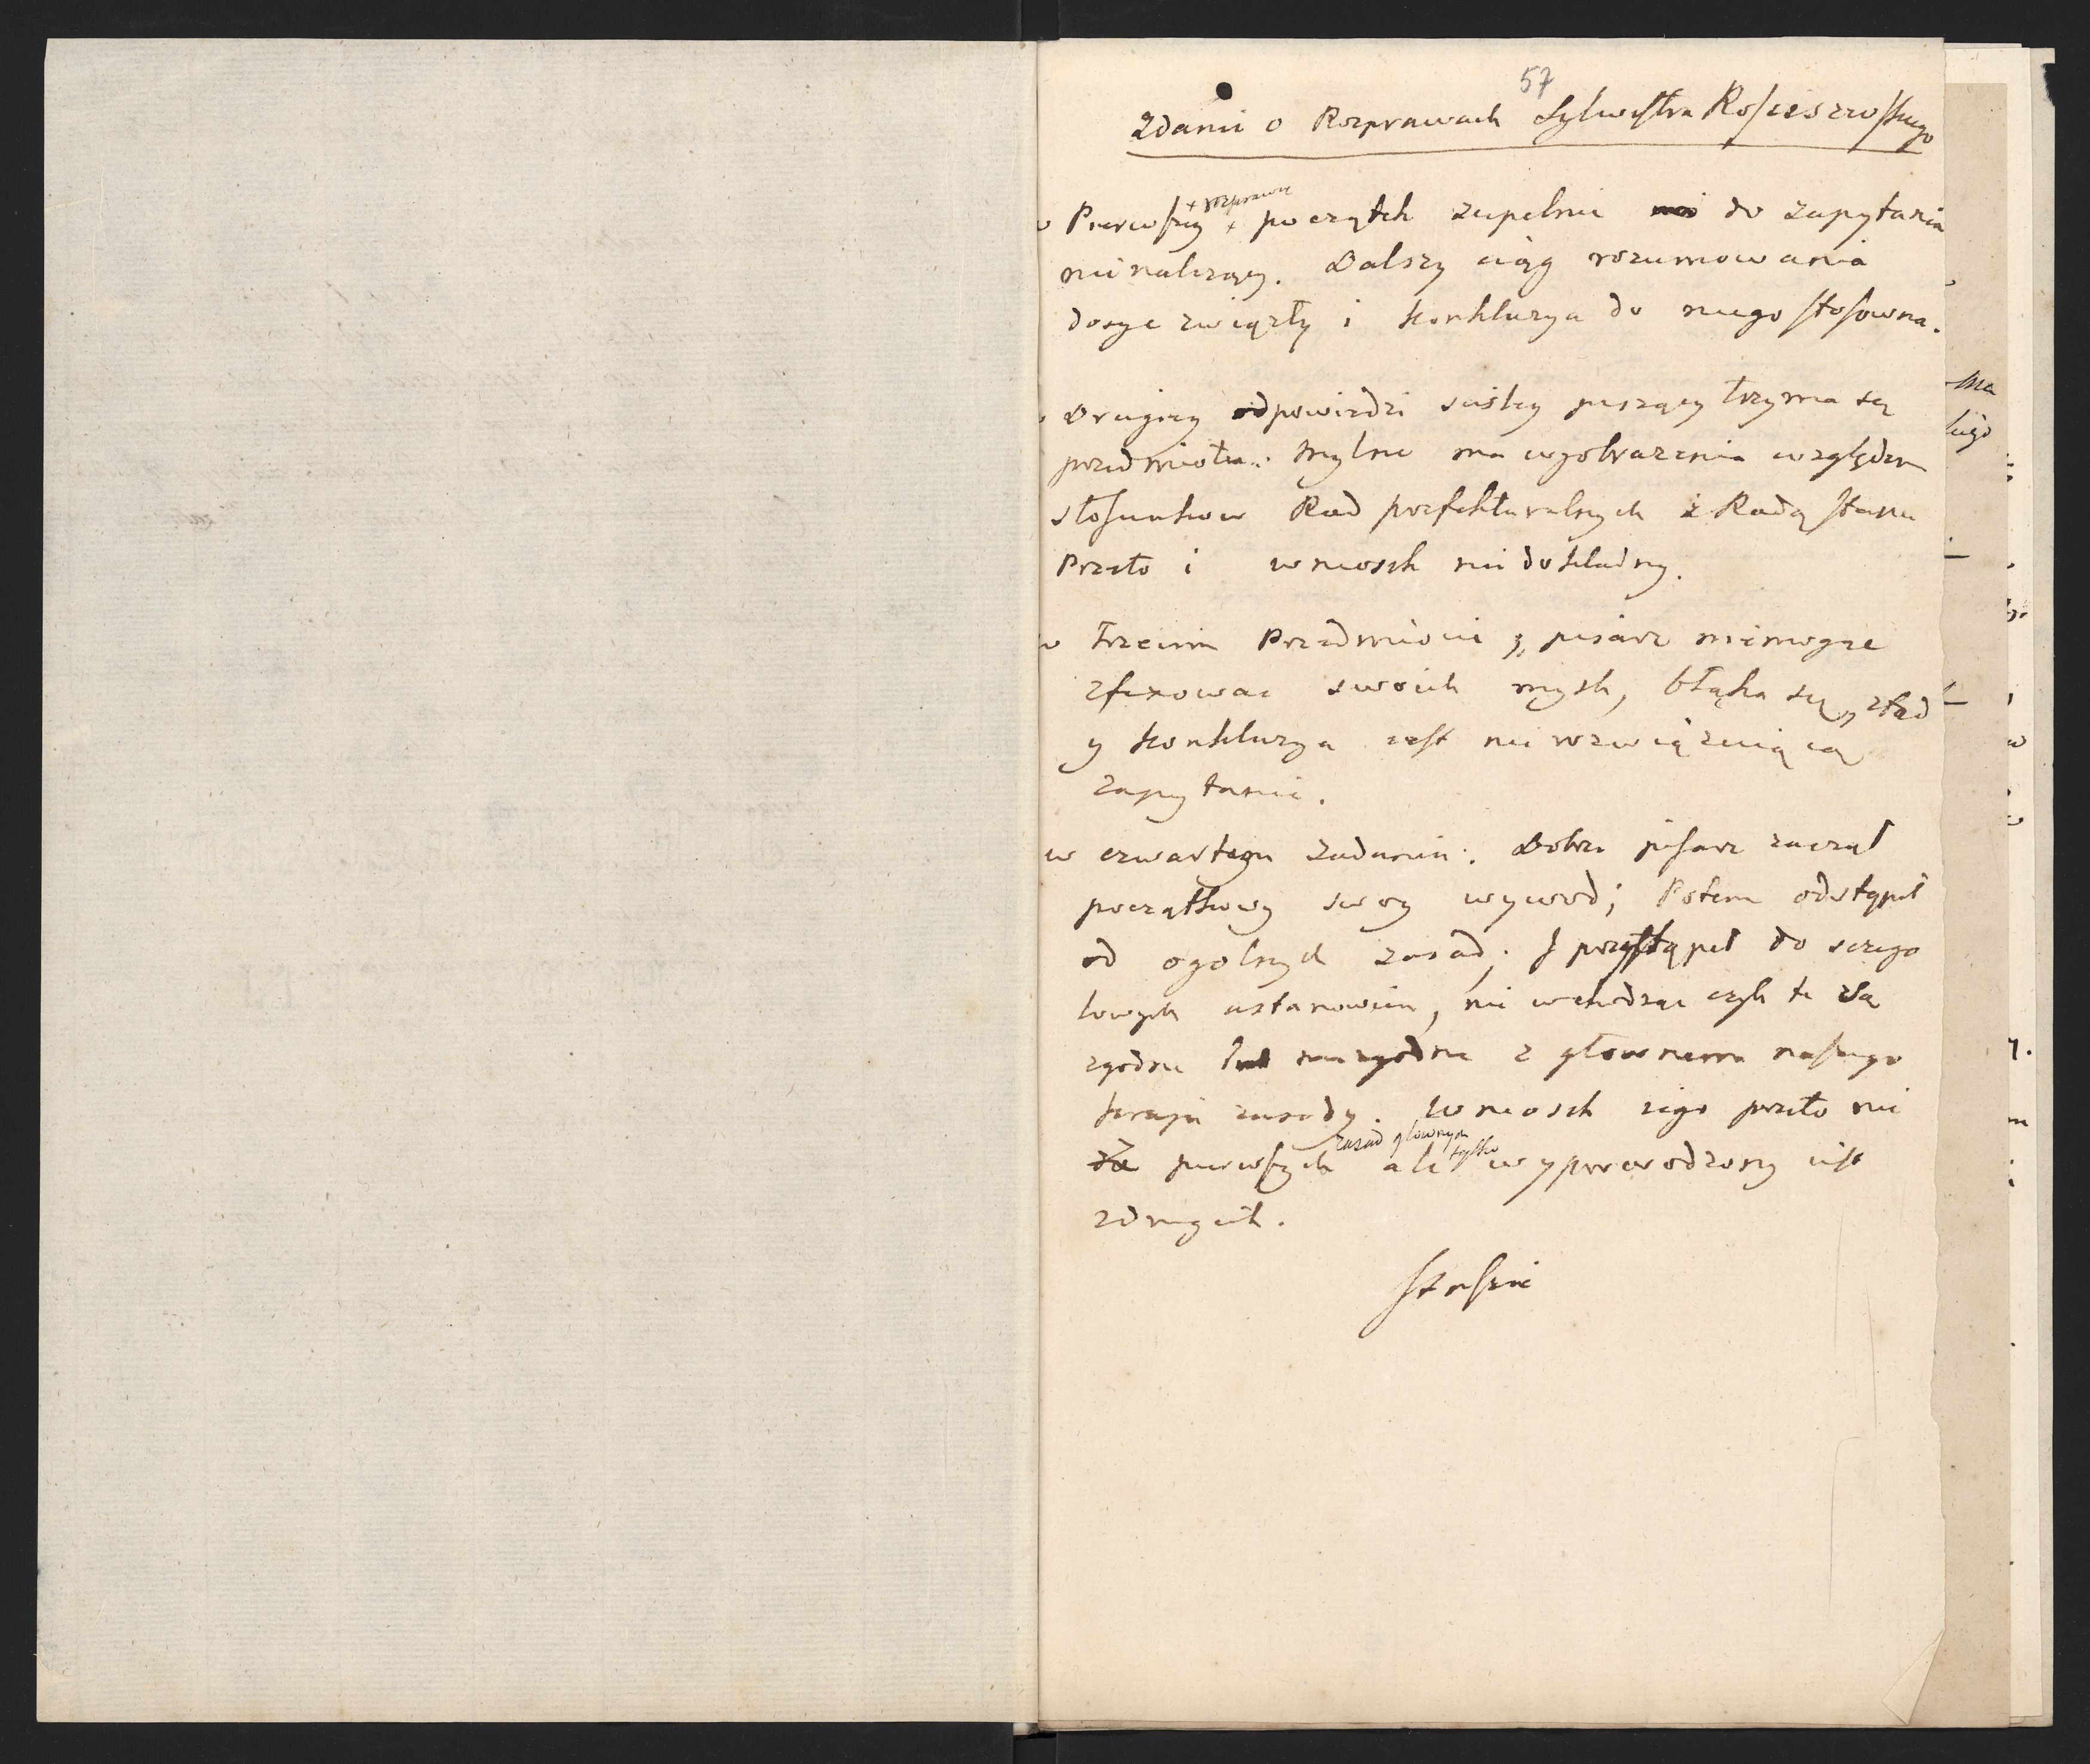 57
Zdanie o Rozprawach Sylwestra Rościszewskiego
w Pierwszey + rozprawie + początek zupełnie do zapytania
nienależący. Dalszy ciąg rozumowania
dosyc związły i konkluzya do niego stosowna.
w Drugiey odpowiedzi ściśley piszący trzyma się
przedmiotu. Mylne ma wyobrażenia względem
stosunkow Rad prefekturalnych z Radą stanu
Przeto i wniosek niedokładny.
w Trzecim Przedmiocie, pisarz niemogąc
zfixowac swoich mysli, błąka się, ztąd
y konkluzya iest nierozwięzuiącą
zapytanie.
w czwartem zadaniu. Dobrze pisarz zaczął
początkowy swoy wywod; Potem odstąpił
od ogolnych zasad; J przystąpił do szczego
lowych ustanowien, nie wchodząc czyli te są
zgodne lub niezgodne z głownemi naszego
kraju zasady. Wniosek iego przeto nie
za pierwszych zasad głownym ale tylko wyprowodzony iest
zdrugich.
Staszic